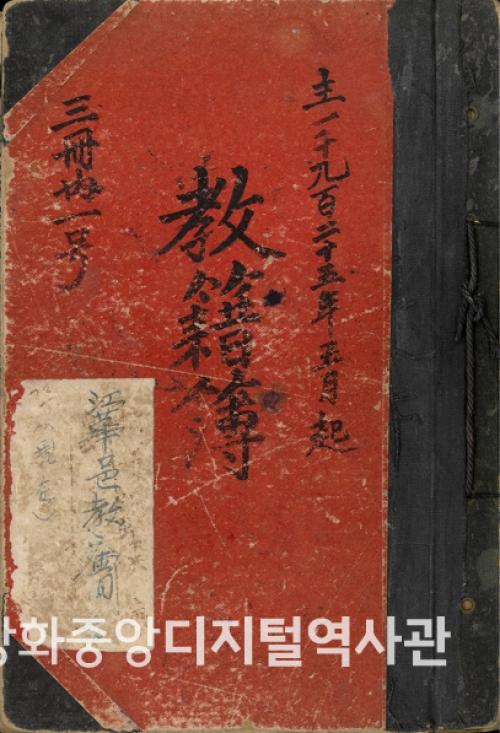 主一千九百二十五年五月起
教籍簿
三冊內一号
江華邑敎會
강화중앙디지털역사관